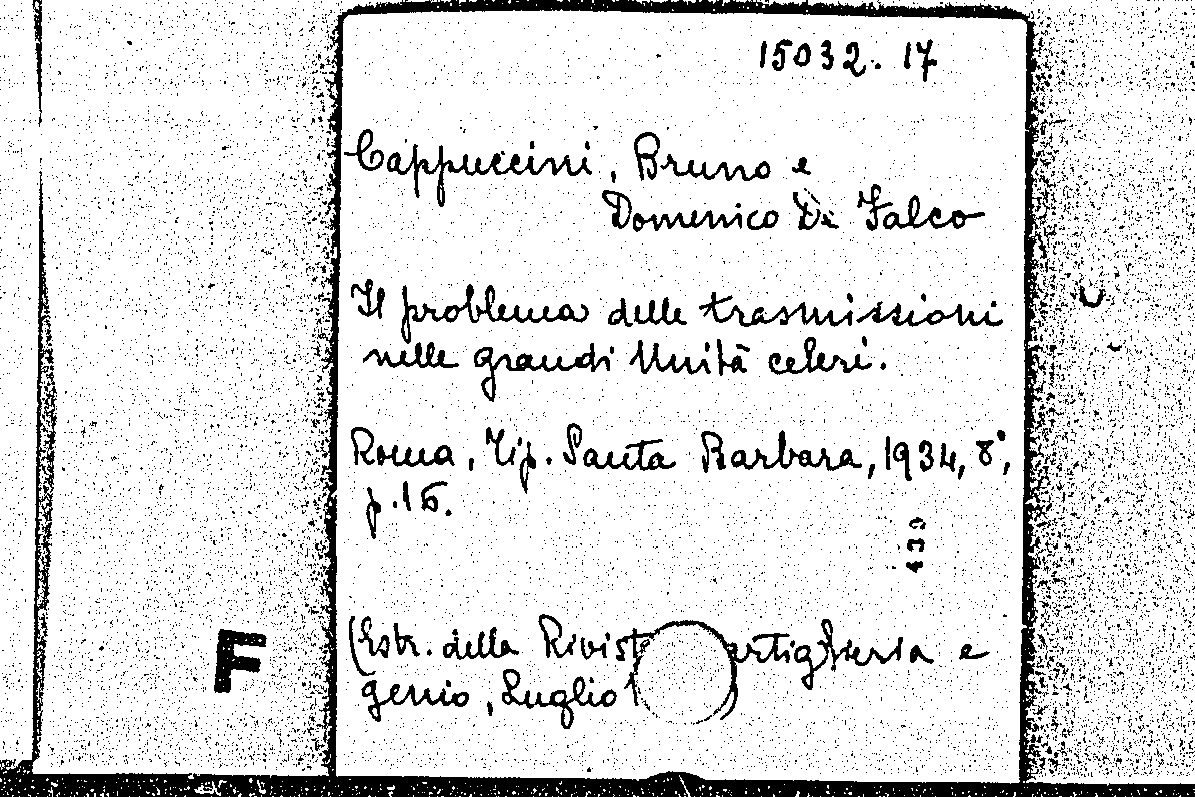 15032. 17
Cappuccini, Bruno e
Domenico Di Falco
Il problema delle trasmissioni
nelle grandi Unità celeri.
Roma, Tip. Santa Barbara, 1934, 8°,
p. 16.
(Estr. della Rivist artiglieria e
genio, Luglio 1 )
F